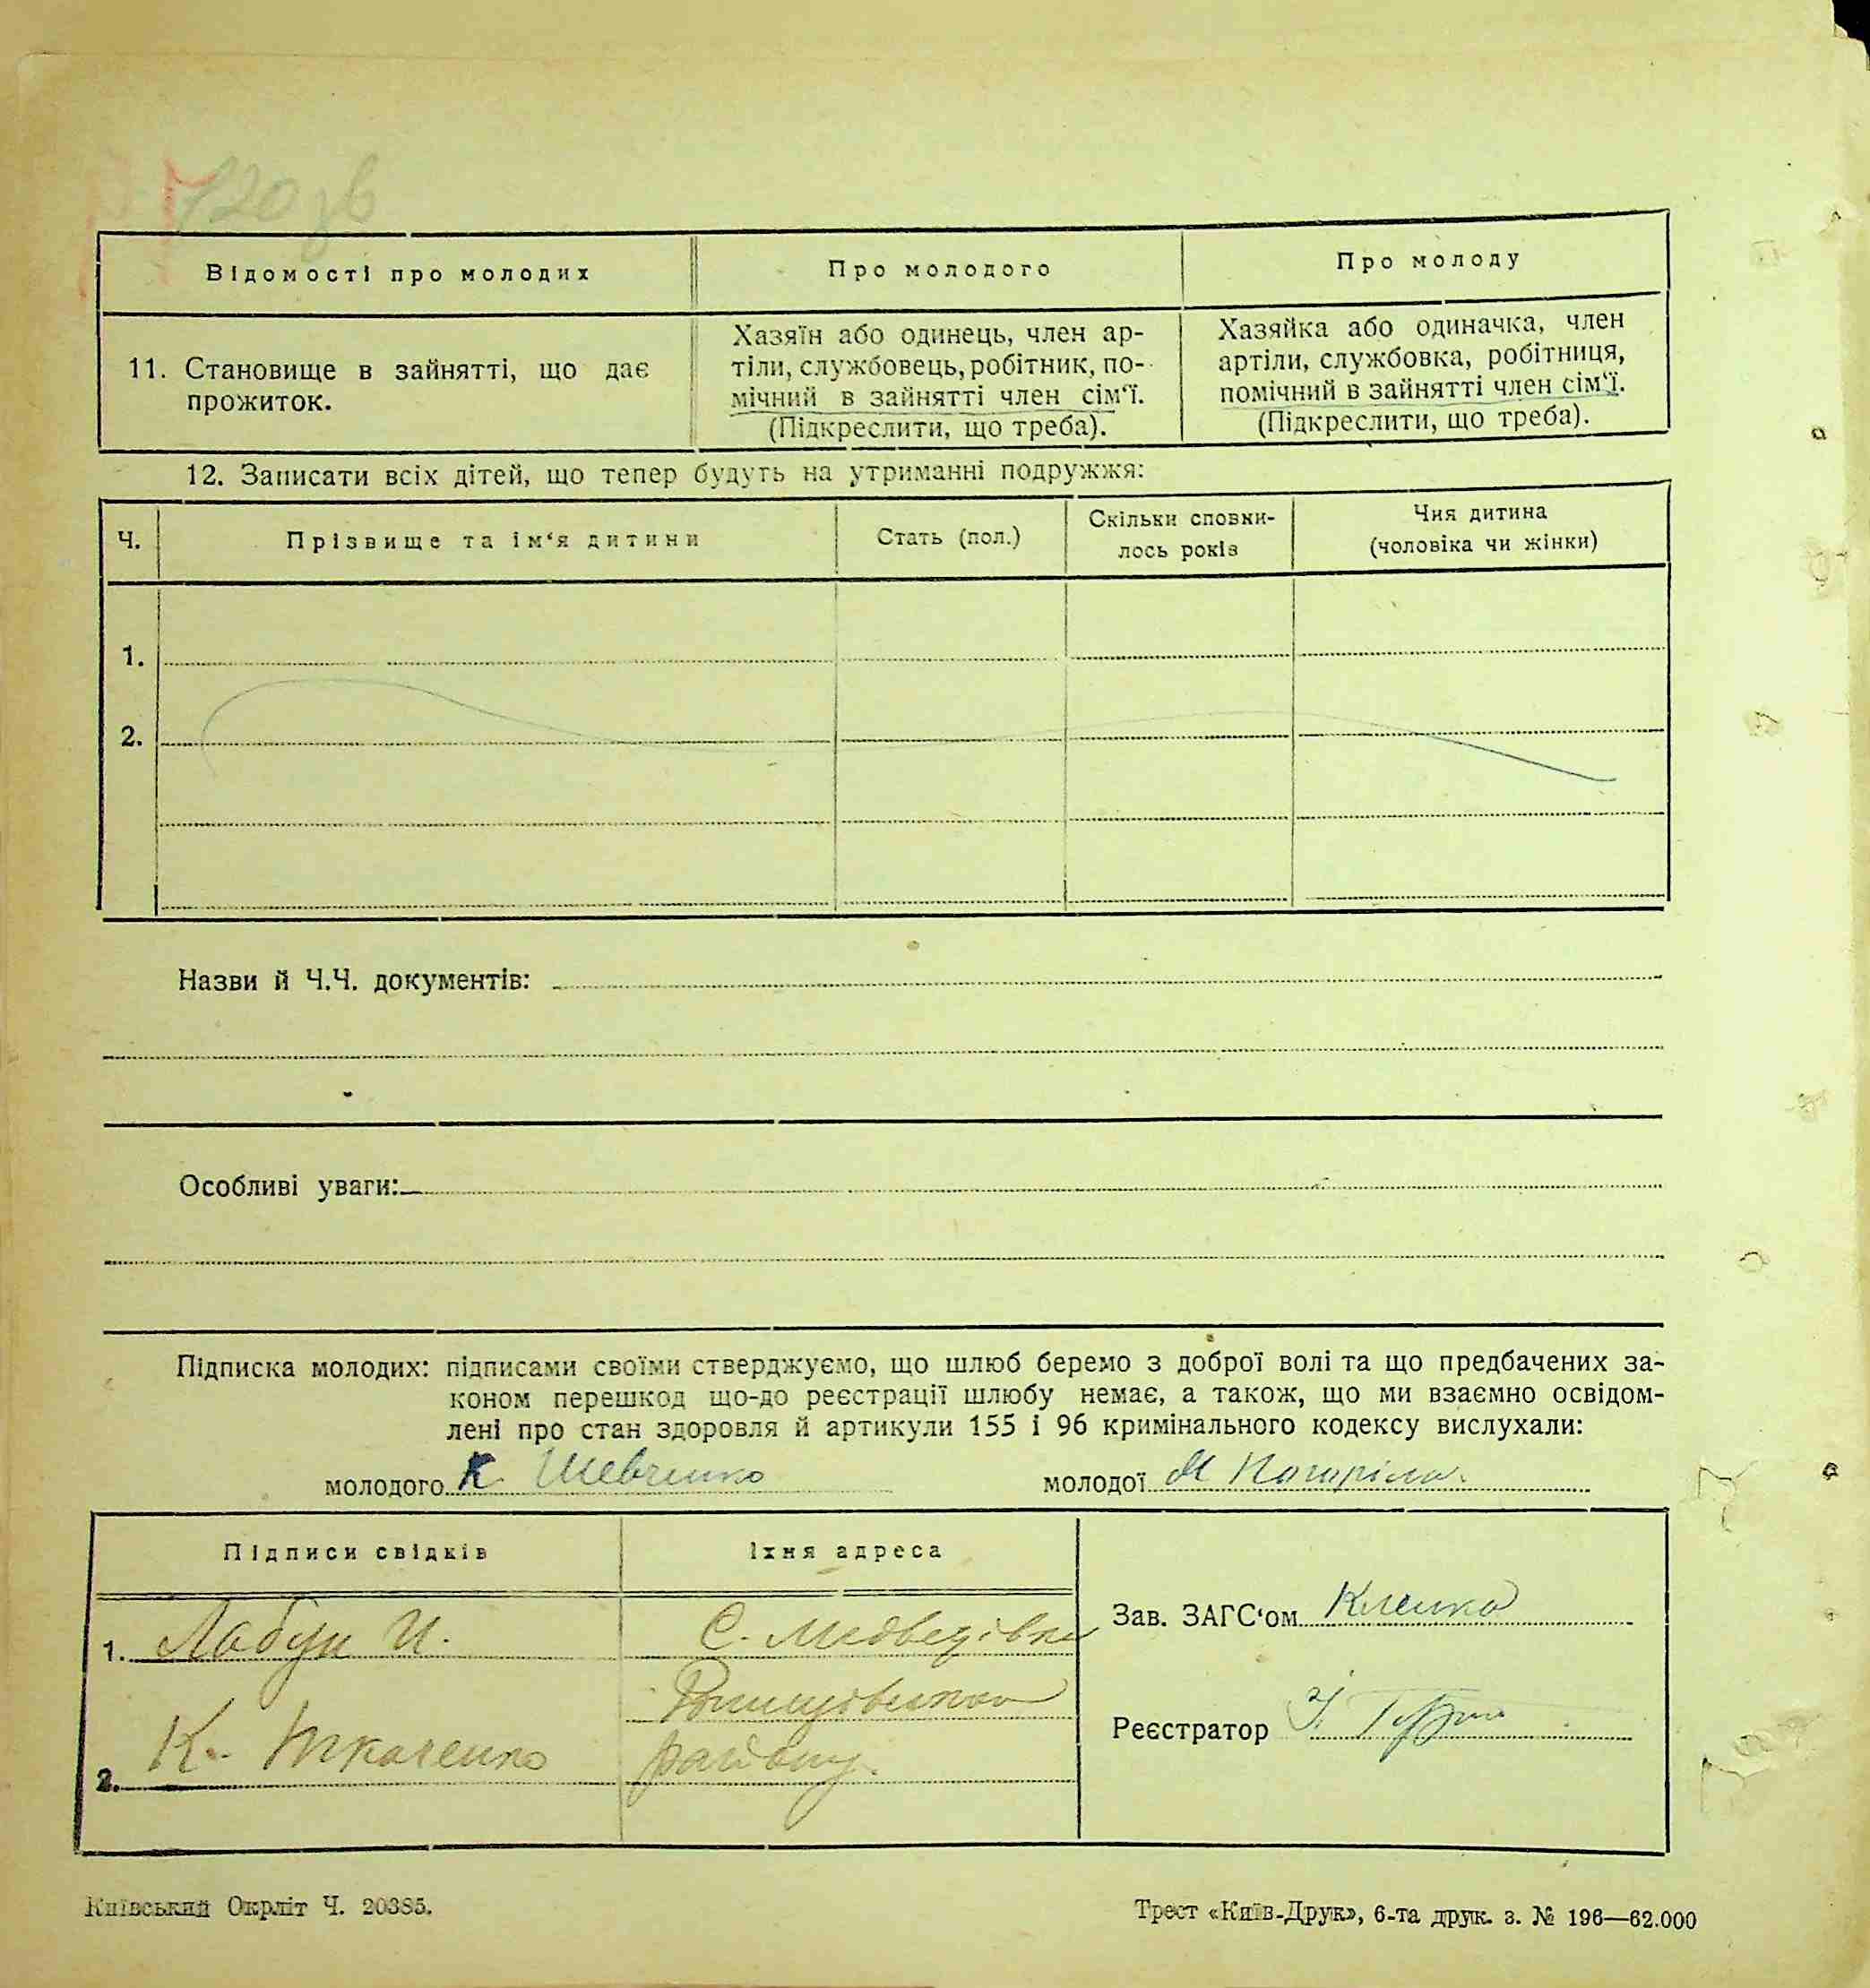 720 зв
Відомості про молодих
Про молодого
Про молоду
11. Становище в зайнятті, що дає
прожиток.
Хазяїн або одинець, член ар-
тіли, службовець, робітник, по-
мічний в зайнятті член сім‘ї.
(Підкреслити, що треба).
Хазяйка або одиначка, член
артіли, службовка, робітниця,
помічний в зайнятті член сім‘ї.
(Підкреслити, що треба).
12. Записати всіх дітей, що тепер будуть на утриманні подружжя:
Ч.
Прізвище та ім‘я дитини
Стать (пол.)
Скільки сповни-
лось років
Чия дитина
(чоловіка чи жінки)
1.
2.
Назви й Ч.Ч. документів:
Особливі уваги:
Підписка молодих: підписами своїми стверджуємо, що шлюб беремо з доброї волі та що предбачених за-
коном перешкод що-до реєстрації шлюбу немає, а також, що ми взаємно освідом-
лені про стан здоровля й артикули 155 і 96 кримінального кодексу вислухали:
молодого К. Шевченко
молодої М Погоріла
Підписи свідків
Їхня адреса
1. Лабун И.
С. Медведівки
2. К. Ткаченко
району.
Зав. ЗАГС‘ом Кленко
Реєстратор
Київський Окрліт Ч. 20385.
Трест «Київ-Друк», 6-та друк. з. № 196—62.000